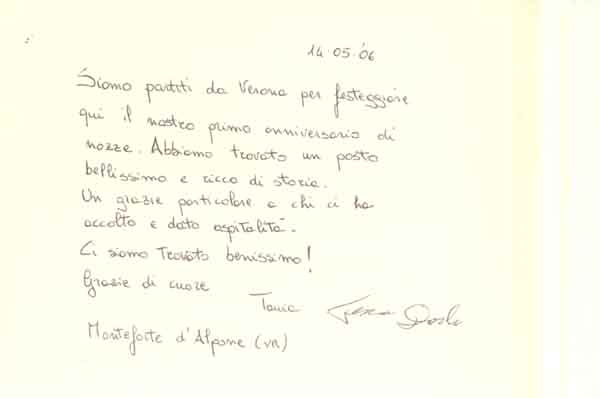 14.05.'06
Siamo partiti da Verona per festeggiare
qui il nostro primo anniversario di
nozze. Abbiamo trovato un posto
bellissimo e ricco di storia.
Un grazie particolare a chi ci ha
accolto e dato ospitalità.
Ci siamo trovati benissimo!
Grazie di cuore
Tania
Monteforte d'Alpone (VR)